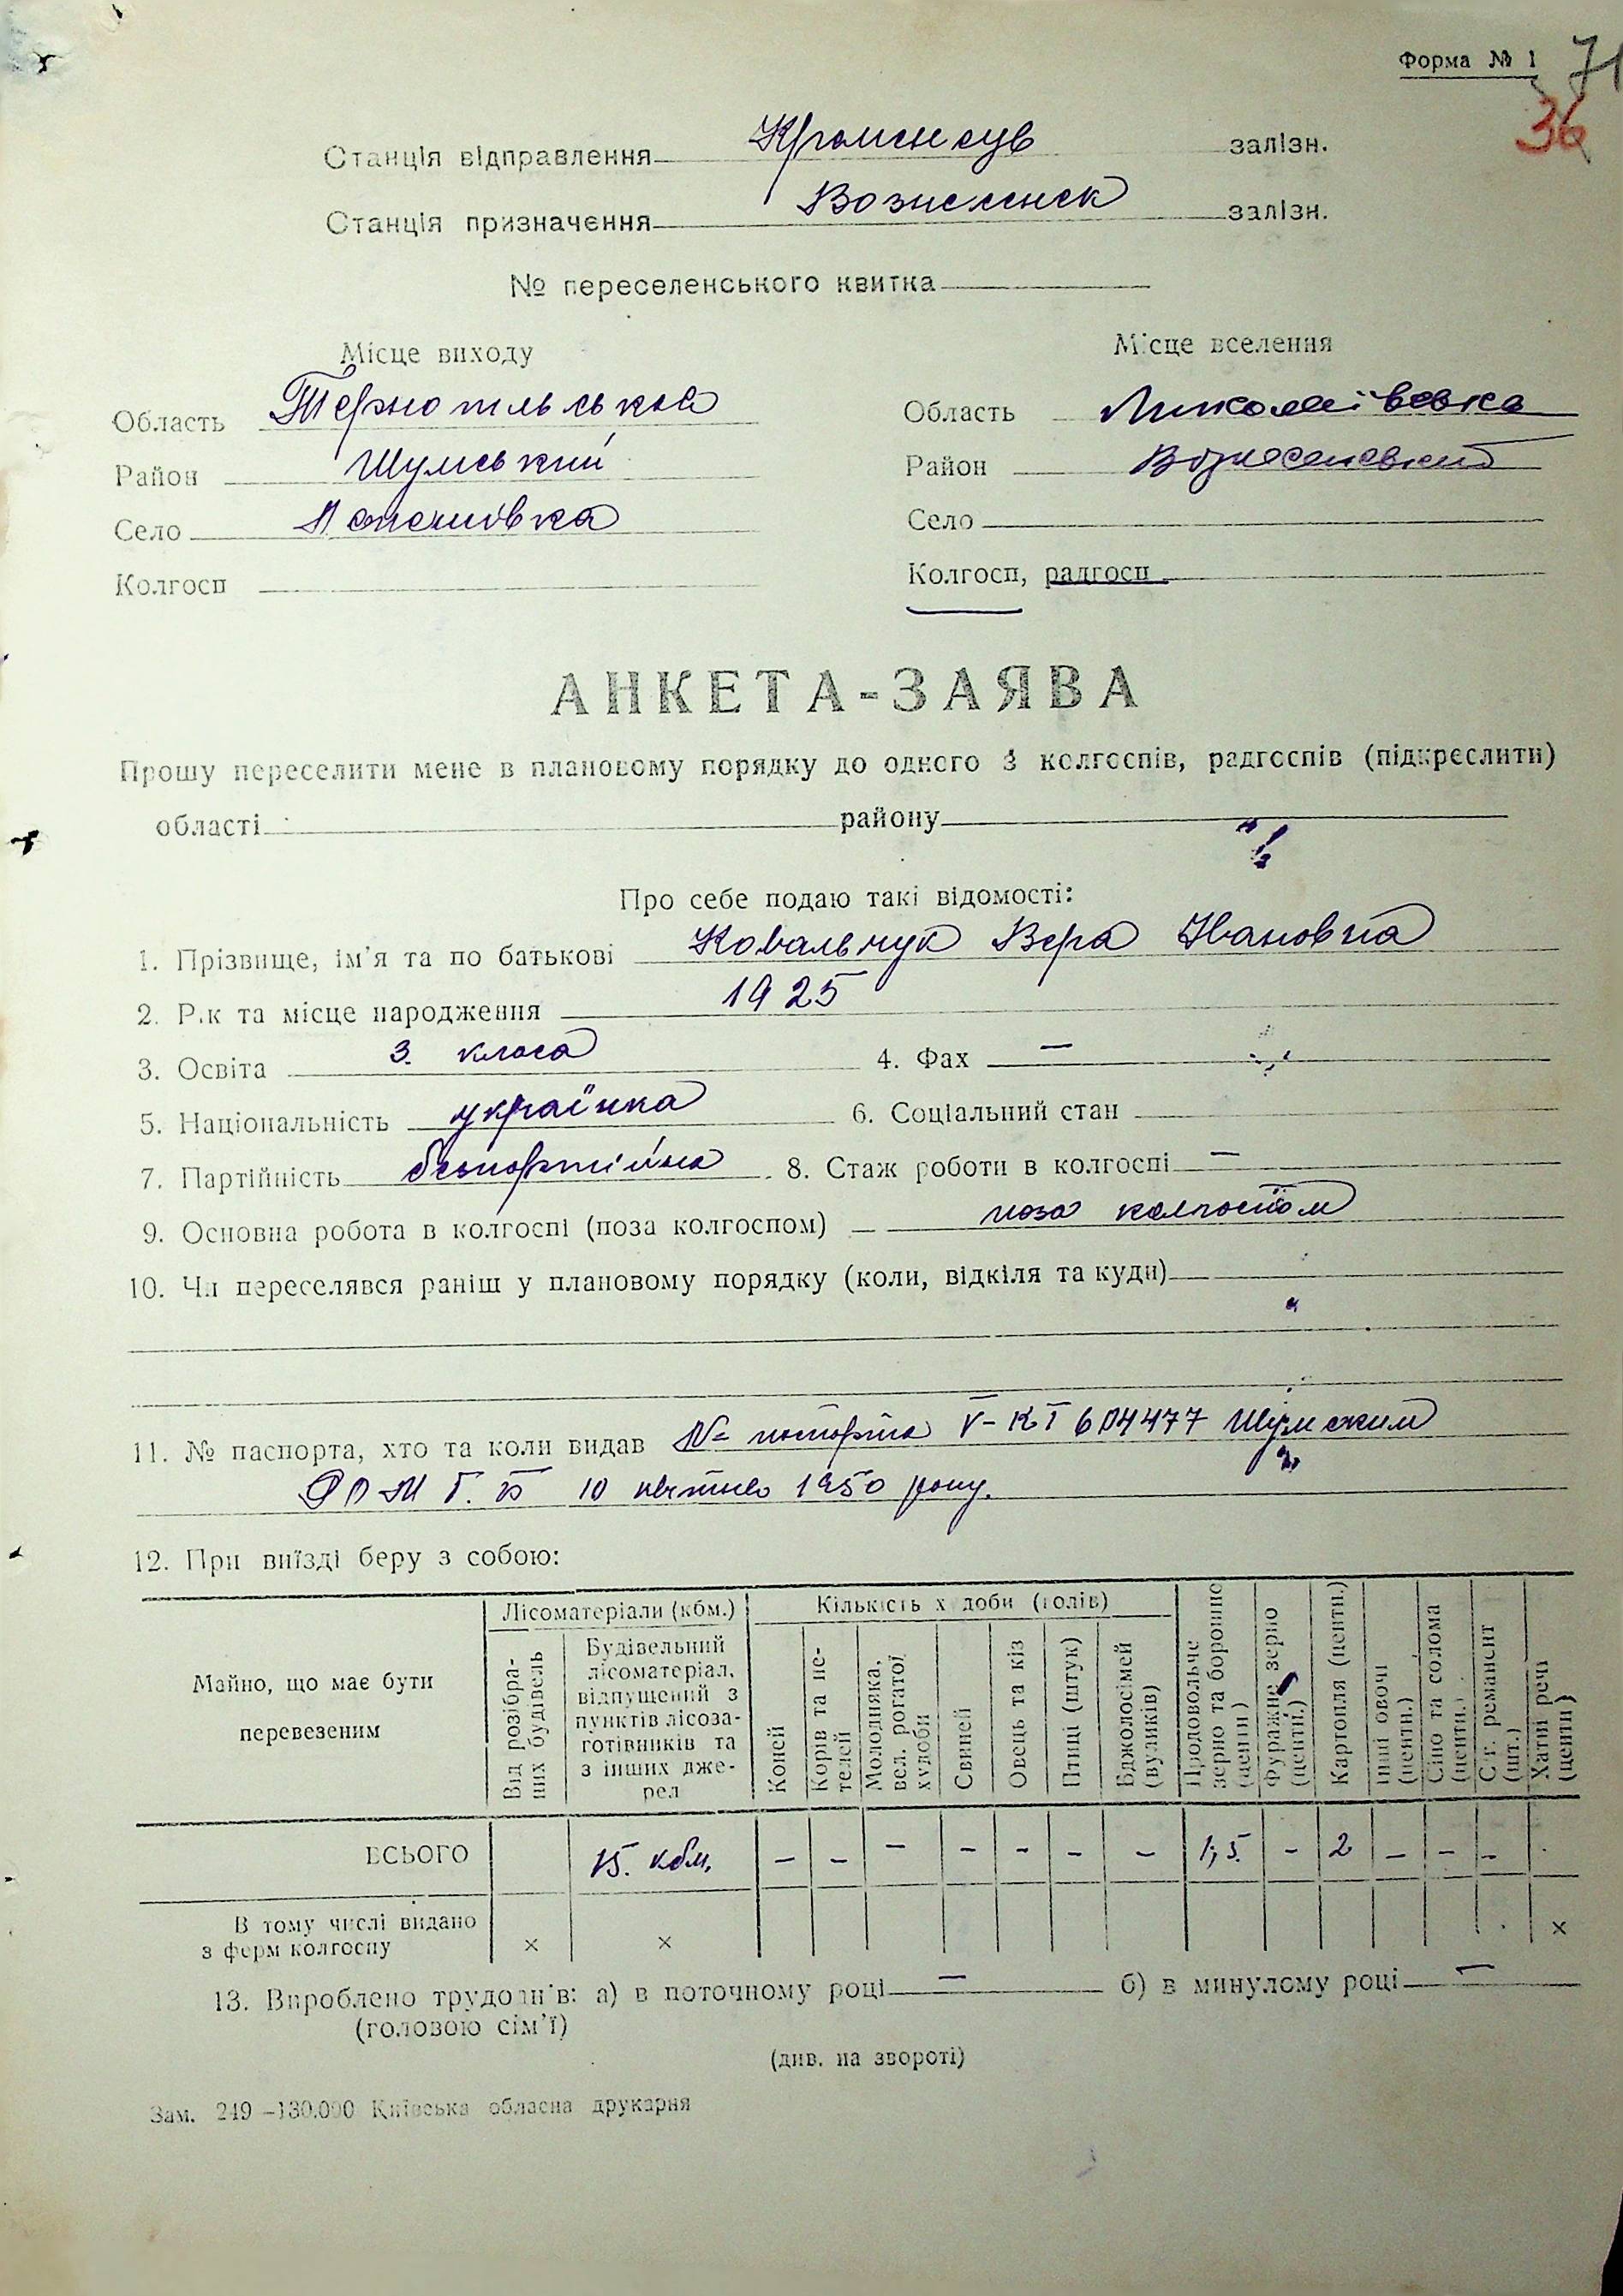 Форма № 1 71
36
Станція відправлення Кременець залізн.
Станція призначення Вознесенск залізн.
№ переселенського квитка
Місце виходу
Область Тернопільська
Район Шумський
Село
Колгосп
Місце вселення
Область Миколаївська
Район Вознесенський
Село
Колгосп, радгосп
АНКЕТА-ЗАЯВА
Прошу переселити мене в плановому порядку до одного з колгоспів, радгоспів (підкреслити)
області району
Про себе подаю такі відомості:
1. Прізвище, ім'я та по батькові Ковальчук Вера Івановна
2. Рік та місце народження 1925
3. Освіта 3. класа 4. Фах —
5. Національність українка 6. Соціальний стан
7. Партійність безпартійна 8. Стаж роботи в колгоспі —
9. Основна робота в колгоспі (поза колгоспом) — поза колгоспом
10. Чи переселявся раніш у плановому порядку (коли, відкіля та куди)
11. № паспорта, хто та коли видав № паспорта V-КТ 604477 Шумським
10 1950 року.
12. При виїзді беру з собою:
Майно, що має бути перевезеним
Лісоматеріали (кбм.)
Від розібраних будівель
Будівельний лісоматеріал, відпущений з пунктів лісозаготівників та з інших джерел
Кількість худоби (голів)
Коней
Корів та нетелей
Молодняка, вел. рогатої худоби
Свиней
Овець та кіз
Птиці (штук)
Бджолосімей (вуликів)
Продовольче зерно та борошно (центн.)
Фуражне зерно (центн.)
Картопля (центн.)
Інші овочі (центн.)
Сіно та солома (центн.)
С.-г. реманент (шт.)
Хатні речі (центн.)
ВСЬОГО 15. кбм. — — — — — — — 1,5. — 2 — — —
В тому числі видано
з ферм колгоспу × × ×
13. Вироблено трудоднів: а) в поточному році — б) в минулому році —
(головою сім'ї)
(див. на звороті)
Зам. 249—130.000 Київська обласна друкарня